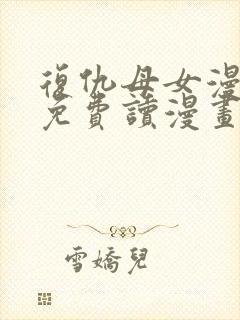 復仇母女漫
免費讀漫畫
雪嬌兒